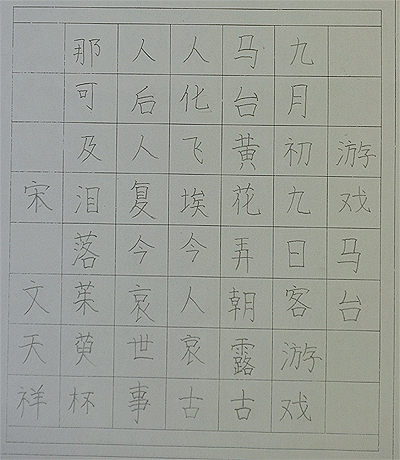 游戏马台
九月初九日客游戏
马台黄花弄朝露古
人化飞埃今人哀古
人后人复今哀世事
那可及泪落茱萸杯
宋 文天祥